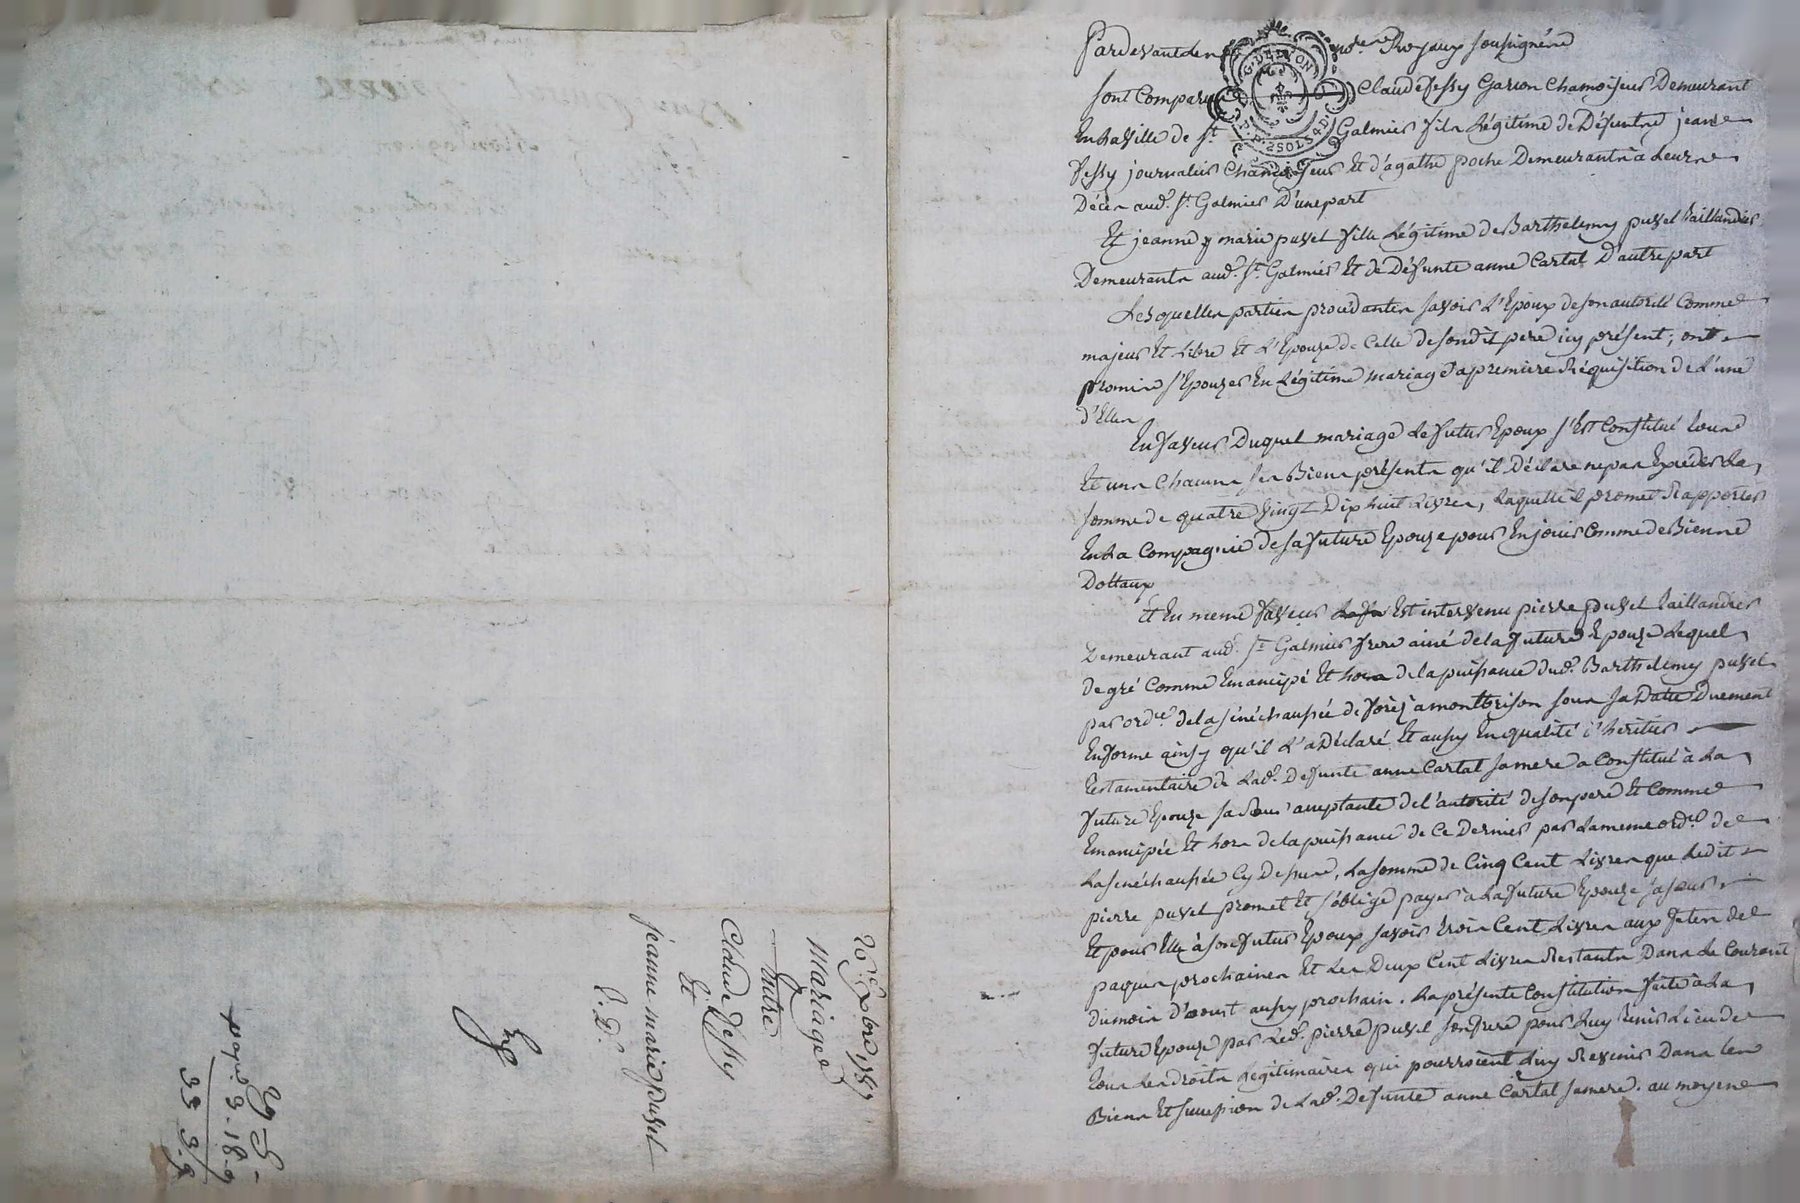 Pardevant Les no.res Royaux soussignés
G. DE LYON
P. P. 2 SOLS 4 D.
sont Comparus Claude fessy Garson Chamoiseur Demeurant
En La Ville de St. Galmier fils Légitime de Défunts jean
fessy journalier Chamoiseur Et d'agathe poche Demeurants à Leurs
Décès aud. St. Galmier D'une part
Et jeanne marie puvel fille Légitime de Barthelemy puvel taillandier
Demeurants aud. St. Galmier Et de Défunte anne Cartal D'autre part
Lesquelles parties procédantes savoir L'Epoux de son autorité Comme
majeur Et Libre Et L'Epouze de Celle de sondit pere icy présent, ont
promis s'Epouzer En Légitime mariage à premiere Réquisition de L'une
d'Elles
En faveur Duquel mariage Le futur Epoux s'Est Constitué tous
Et uns Chacuns ses Biens présents qu'il Déclare ne pas Exceder La
somme de quatre vingt Dix huit Livres, Laquelle il promet Rapporter
En La Compagnie de sa future Epouze pour En jouir Comme de Biens
Dottaux
Et En meme faveur Est intervenu pierre puvel taillandier
Demeurant aud. St. Galmier frere ainé de la future Epouze Lequel
de gré Comme Emancipé Et hors de la puissance dud. Barthelemy puvel
par ord.ce de la sénéchaussée de forêz à montbrison sous sa Date Duement
En forme ainsy qu'il L'a Déclaré Et aussy En qualité d'heritier
testamentaire de Lad. Defunte anne Cartal sa mere a Constitué à La
future Epouze sa soeur acceptante de l'autorité de son pere Et Comme
Emancipée Et hors de la puissance de Ce Dernier par La meme ord.ce de
La sénéchaussée Cy Dessus, La somme de Cinq Cent Livres que Ledit
pierre puvel promet Et s'oblige payer à La future Epouze sa soeur
Et pour Elle à son futur Epoux savoir trois Cent Livres aux fetes de
paques prochaines Et Les Deux Cent Livres Restants Dans Le Courant
du mois D'aoust aussy prochain. La présente Constitution faite à La
future Epouze par Led. pierre puvel son frere pour Luy tenir Lieu de
tous Les droits Légitimaires qui pourroient Luy Revenir Dans Les
Biens Et succession de Lad. Defunte anne Cartal sa mere. au moyens
Mariage
Entre
Claude fessy
Et
jeanne marie puvel